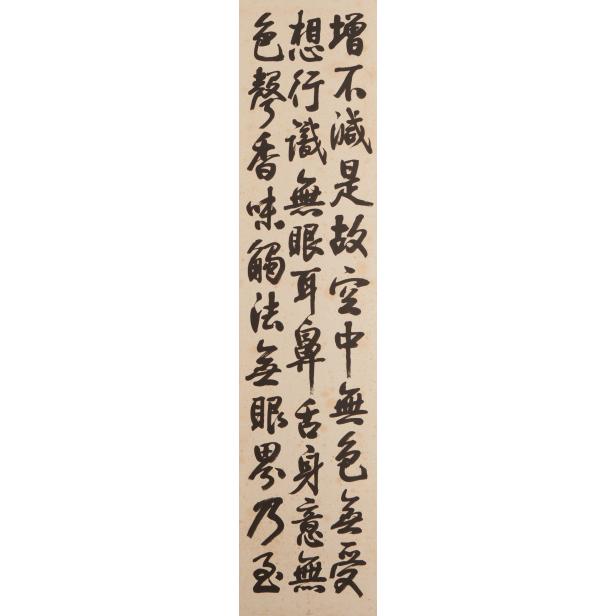 增不減是故空中無色無受
想行識無眼耳鼻舌身意無
色聲香味觸法無眼界乃至